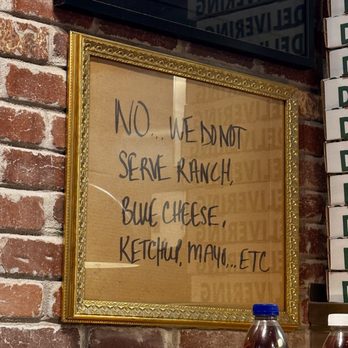 DELIVERING
NO... WE DO NOT
SERVE RANCH,
BLUE CHEESE,
KETCHUP, MAYO...ETC